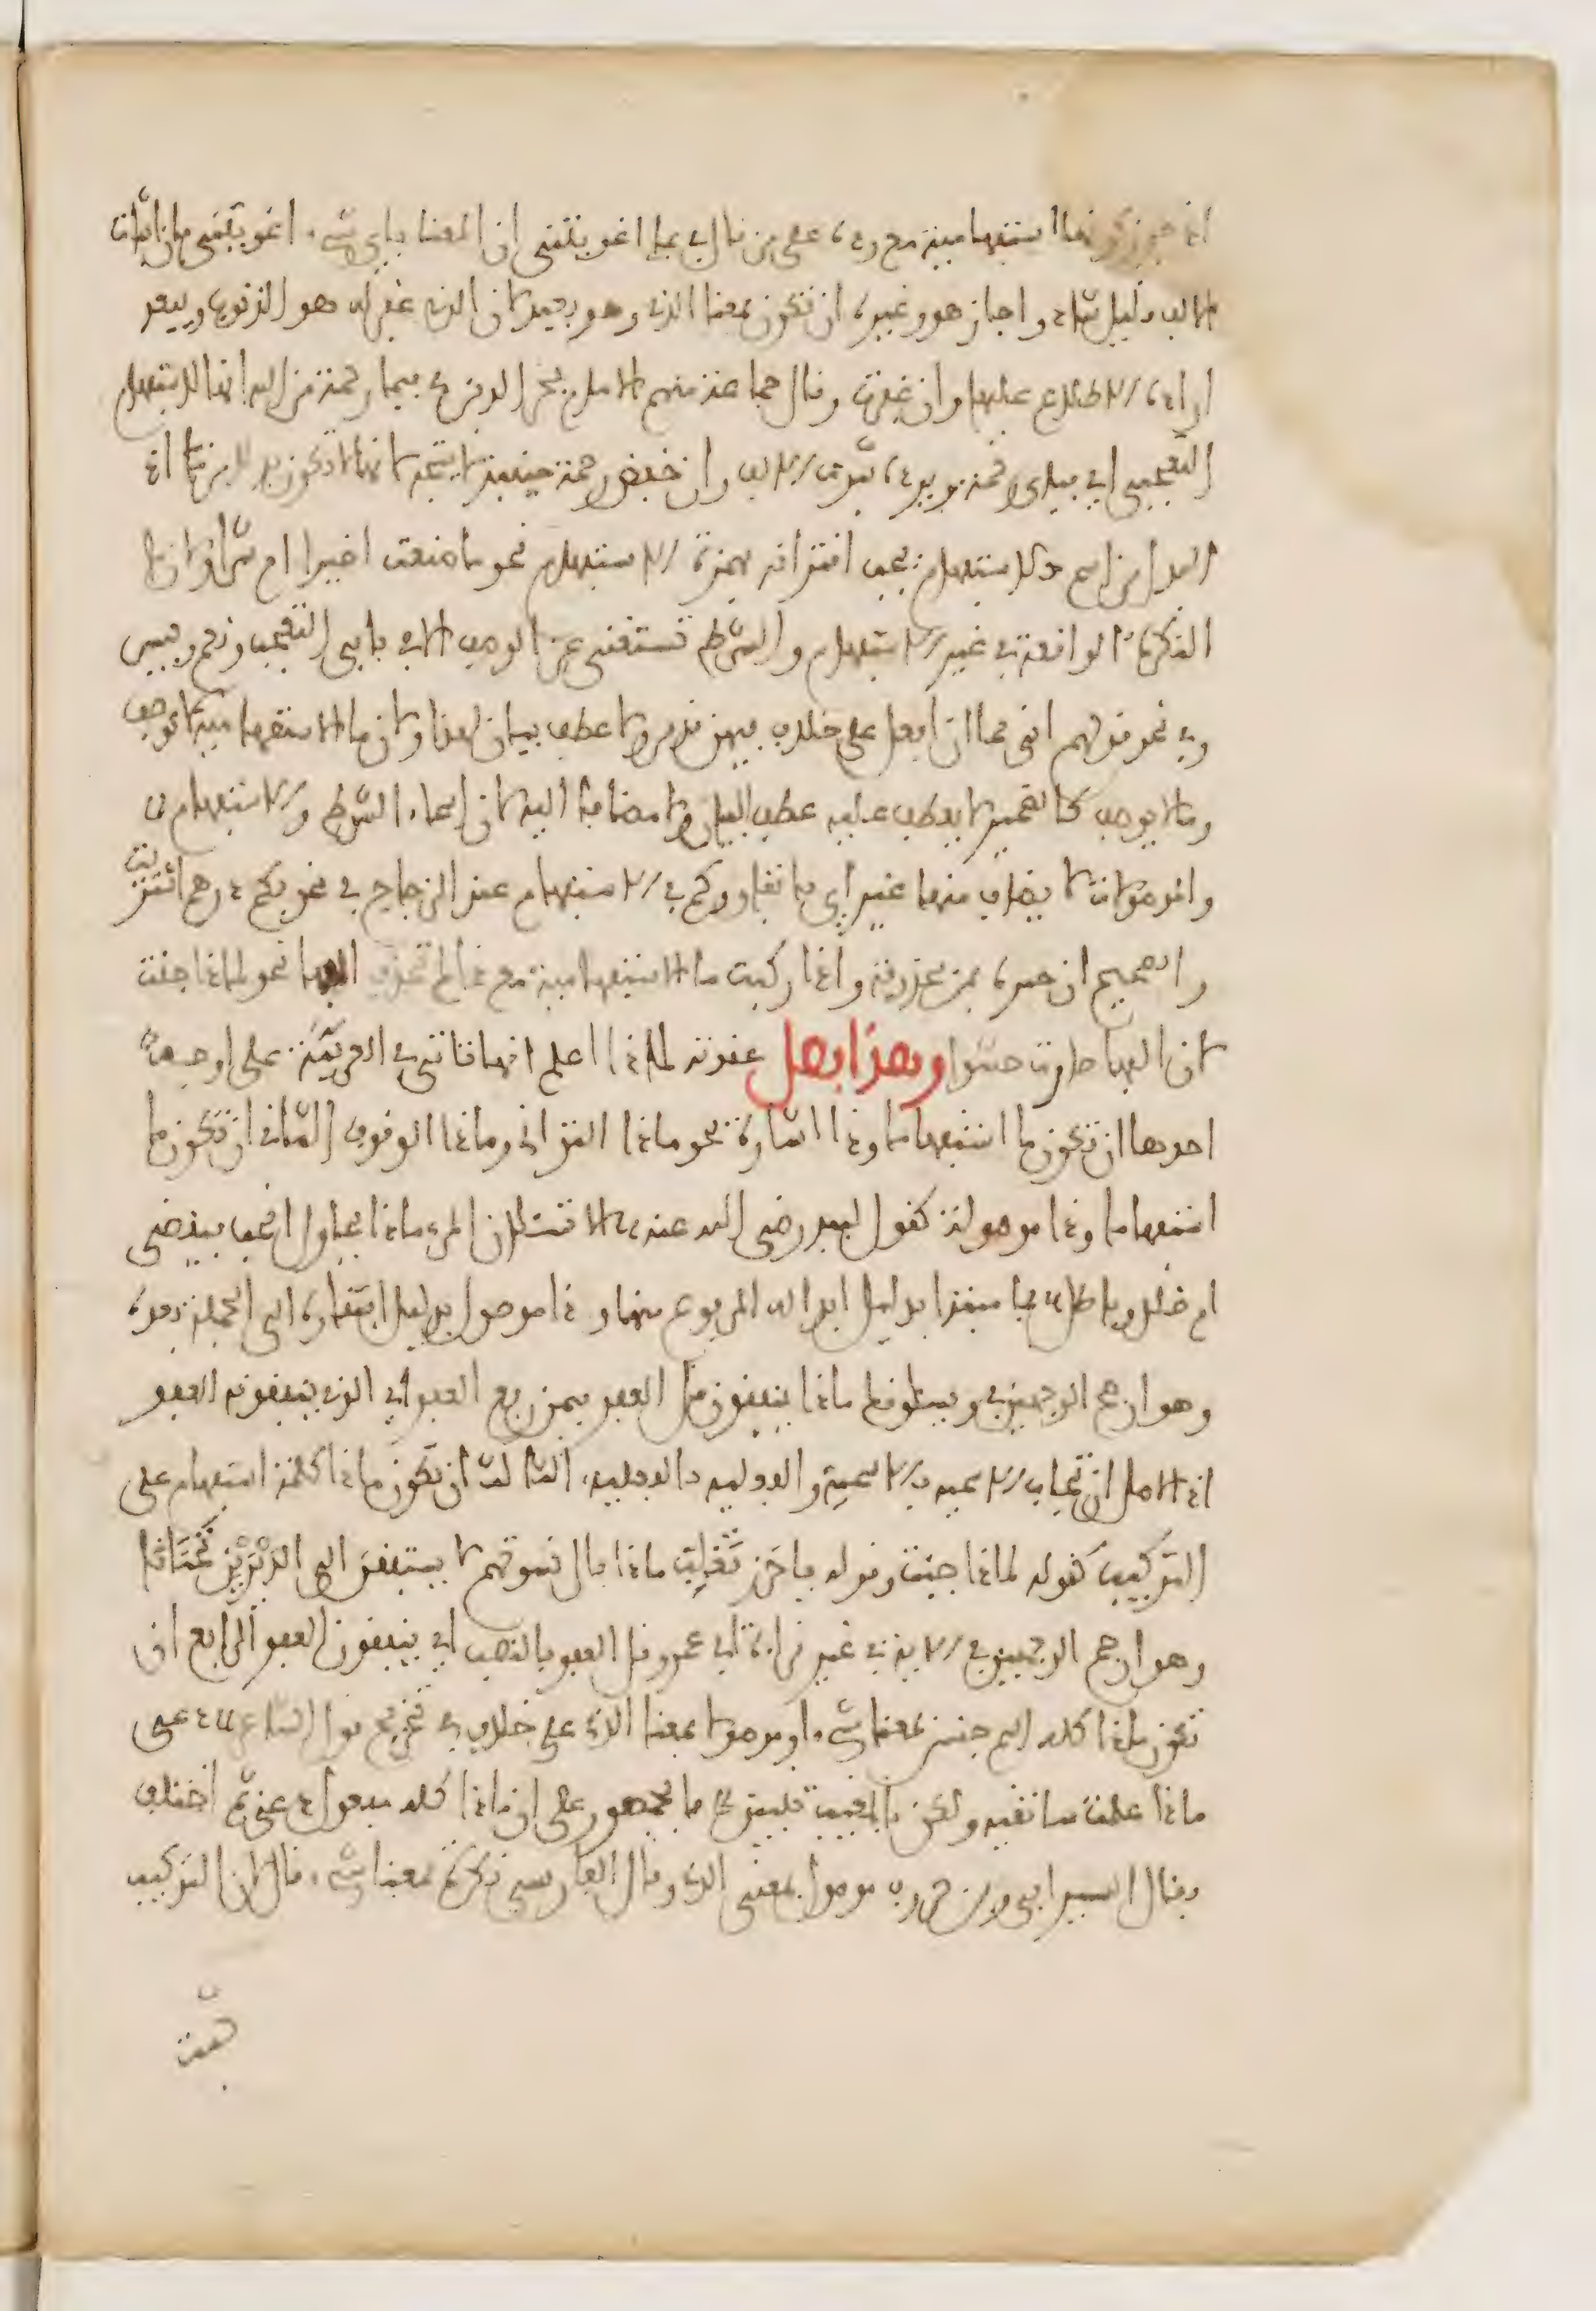 اذ جوز كونها استفهامية مع رده على من قال في بما اغويتني ان المعنا باي شيء اغويتني بان اثبات
الالف قليل شاذ واجاز هو وغيره ان تكون بمعنا الذي وهو بعيد لان الذي غفر له هو الذنوب ويبعد
ارادة الاطلاع عليها وان غفرت وقال جماعة منهم الامام فخر الدين في فبما رحمة من الله انها للاستفهام
التعجبي اي فباي رحمة ويرده ثبوت الالف وان خفض رحمة حينئذ لا يتجه لانها لا تكون بدلا من ما اذ
البدل من اسم الاستفهام يجب اقترانه بهمزة الاستفهام نحو ما صنعت اخيرا ام شرا ولان ما
النكرة الواقعة في غير الاستفهام والشرط تستغني عن الوصف الا في بابي التعجب ونعم وبيس
وفي نحو قولهم اني مما ان افعل على خلاف فيهن قد مر ولا عطف بيان لهذا ولان ما الاستفهامية لا توصف
وما لا يوصف كالضمير لا يعطف عليه عطف البيان ولا مضافا اليه لان اسماء الشرط والاستفهام
والموصولات لا يضاف منها غير اي باتفاق وكم في الاستفهام عند الزجاج في نحو بكم درهم اشتريت
والصحيح ان جره بمن محذوفة واذا ركبت ما الاستفهامية مع ذا لم تحذف الفها نحو لماذا جئت
لان الفها صارت حشوا وهذا فصل عقدته لماذا اعلم انها تاتي في العربية على اوجه
احدها ان تكون ما استفهاما وذا اشارة نحو ماذا التواني وماذا الوقوف الثاني ان تكون ما
استفهاما وذا موصولة كقول لبيد رضي الله عنه الا تسئلان المرء ماذا يحاول انحب فيقضى
ام ضلال وباطل فما مبتدا بدليل ابداله المرفوع منها وذا موصول بدليل افتقاره الى الجملة بعده
وهو ارجح الوجهين في ويسئلونك ماذا ينفقون قل العفو فيمن رفع العفو اي الذي ينفقونه العفو
اذ الاصل ان تجاب الاسمية بالاسمية والفعلية بالفعلية الثالث ان تكون ماذا كلمة استفهام على
التركيب كقوله لماذا جئت وقوله يا خزر تغلب ماذا بال نسوتكم لا يستفقن الى الديرين تحنانا
وهو ارجح الوجهين في الاية في غير قراءة ابي عمرو قل العفو بالنصب اي ينفقون العفو الرابع ان
تكون ماذا كله اسم جنس بمعنا شيء او موصولا بمعنا الذي على خلاف في تخريج قول الشاعر دعي
ماذا علمت ساتقيه ولكن بالمغيب نبيني فالجمهور على ان ماذا كله مفعول دعي ثم اختلف
فقال السيرافي وابن خروف موصول بمعنى الذي وقال الفارسي نكرة بمعنا شيء قال لان التركيب
ثبت